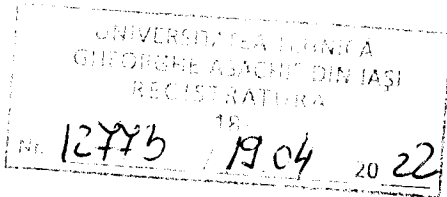 UNIVERSITATEA TEHNICĂ
GHEORGHE ASACHI DIN IAȘI
REGISTRATURA
18
Nr. 12773 / 19 04 20 22